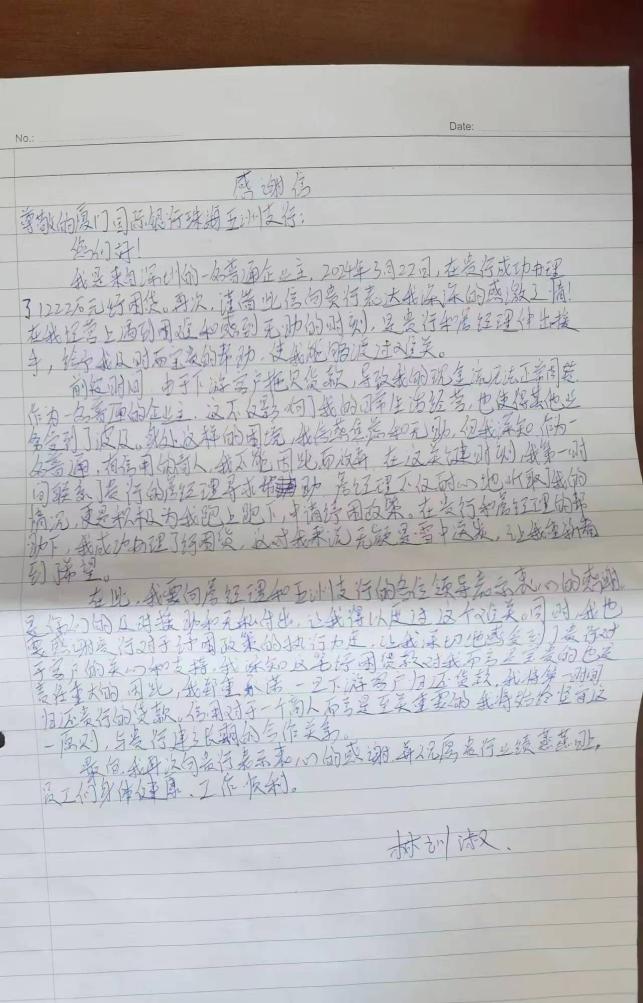 No.:
Date:
感谢信
尊敬的厦门国际银行珠海五洲支行：
您们好！
我是来自深圳的一名普通企业主，2024年3月22日，在贵行成功办理
了1222万元纾困贷。再次，谨借此信向贵行表达我深深的感激之情！
在我经营上遇到困难和感到无助的时刻，是贵行和居经理伸出援
手，给予我及时而宝贵的帮助，使我能够渡过难关。
前段时间，由于下游客户拖欠货款，导致我的现金流无法正常周转
作为一名普通的企业主，这不仅影响了我的正常生活经营，也使得其他业
务受到了波及。身处这样的困境，我倍感焦虑和无助，但我深知，作为一
名普通、有信用的商人，我不能因此而放弃，在这关键时刻，我第一时
间联系了贵行的居经理寻求帮助，居经理不仅耐心地听取了我的
情况，更是积极为我跑上跑下，申请纾困政策。在贵行和居经理的帮
助下，我成功办理了纾困贷，这对我来说无疑是雪中送炭，让我重新看
到了希望。
在此，我要向居经理和五洲支行的各位领导表示衷心的感谢，
是你们的及时援助和无私付出，让我得以度过这个难关。同时，我也
要感谢贵行对于纾困政策的执行力度，让我深切地感受到了贵行对
于客户的关心和支持。我深知这笔纾困贷款对我而言是宝贵的也是
责任重大的，因此，我郑重承诺，一旦下游客户归还货款，我将第一时间
归还贵行的贷款。信用对于一个商人而言是至关重要的，我将始终坚守这
一原则，与贵行建立长期的合作关系。
最后，我再次向贵行表示衷心的感谢，并祝愿贵行业绩蒸蒸日上，
员工们身体健康、工作顺利。